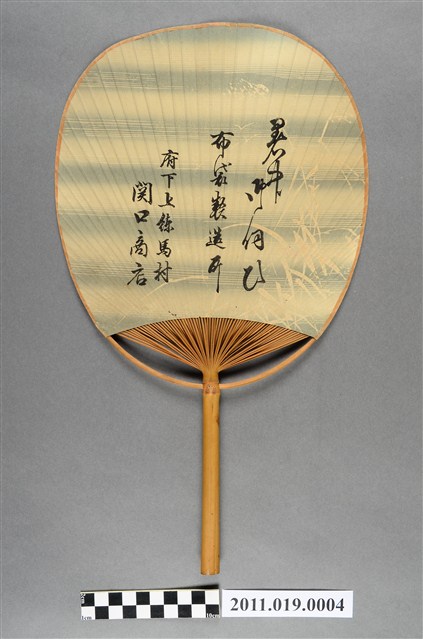 暑中御伺ひ
布袋製造所
府下上練馬村
関口商店
1cm
10cm
2011.019.0004